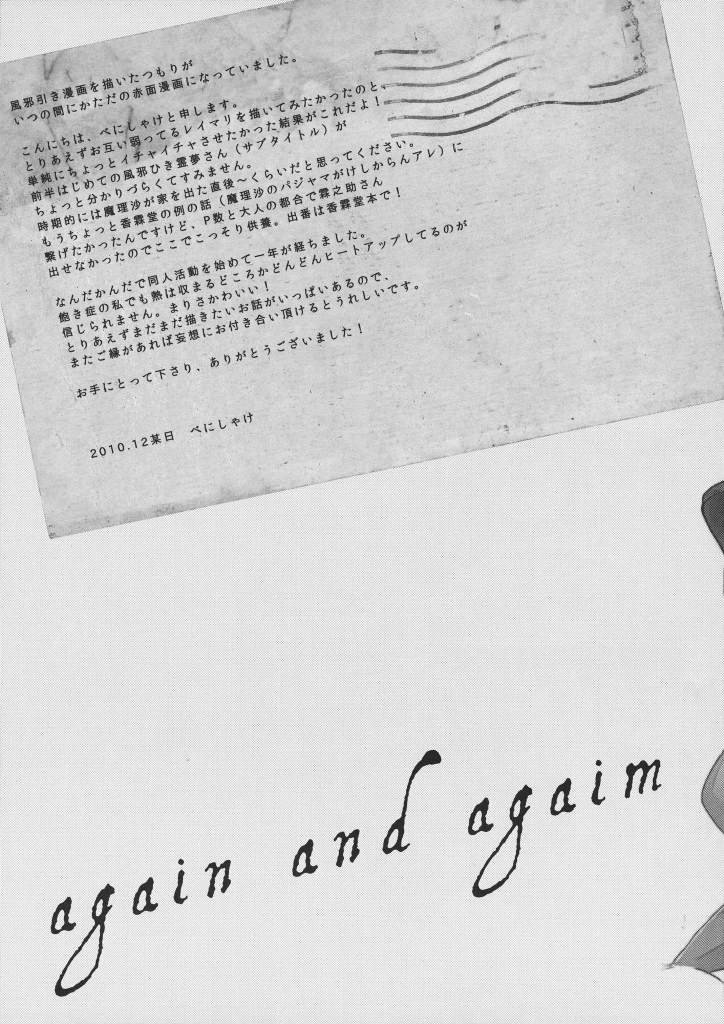 風邪引き漫画を描いたつもりが
いつの間にかただの赤面漫画になっていました。
こんにちは、べにしゃけと申します。
とりあえずお互い弱ってるレイマリを描いてみたかったのと、
単純にちょっとイチャイチャさせたかった結果がこれだよ！
前半はじめての風邪ひき霊夢さん（サブタイトル）が
ちょっと分かりづらくてすみません。
時期的には魔理沙が家を出た直後～くらいだと思ってください。
もうちょっと香霖堂の例の話（魔理沙のパジャマがけしからんアレ）に
繋げたかったんですけど、P数と大人の都合で霖之助さん
出せなかったのでここでこっそり供養。出番は香霖堂本で！
なんだかんだで同人活動を始めて一年が経ちました。
飽き症の私でも熱は収まるどころかどんどんヒートアップしてるのが
信じられません。まりさかわいい！
とりあえずまだまだ描きたいお話がいっぱいあるので、
またご縁があれば妄想にお付き合い頂けるとうれしいです。
お手にとって下さり、ありがとうございました！
2010.12某日　べにしゃけ
again and agaim